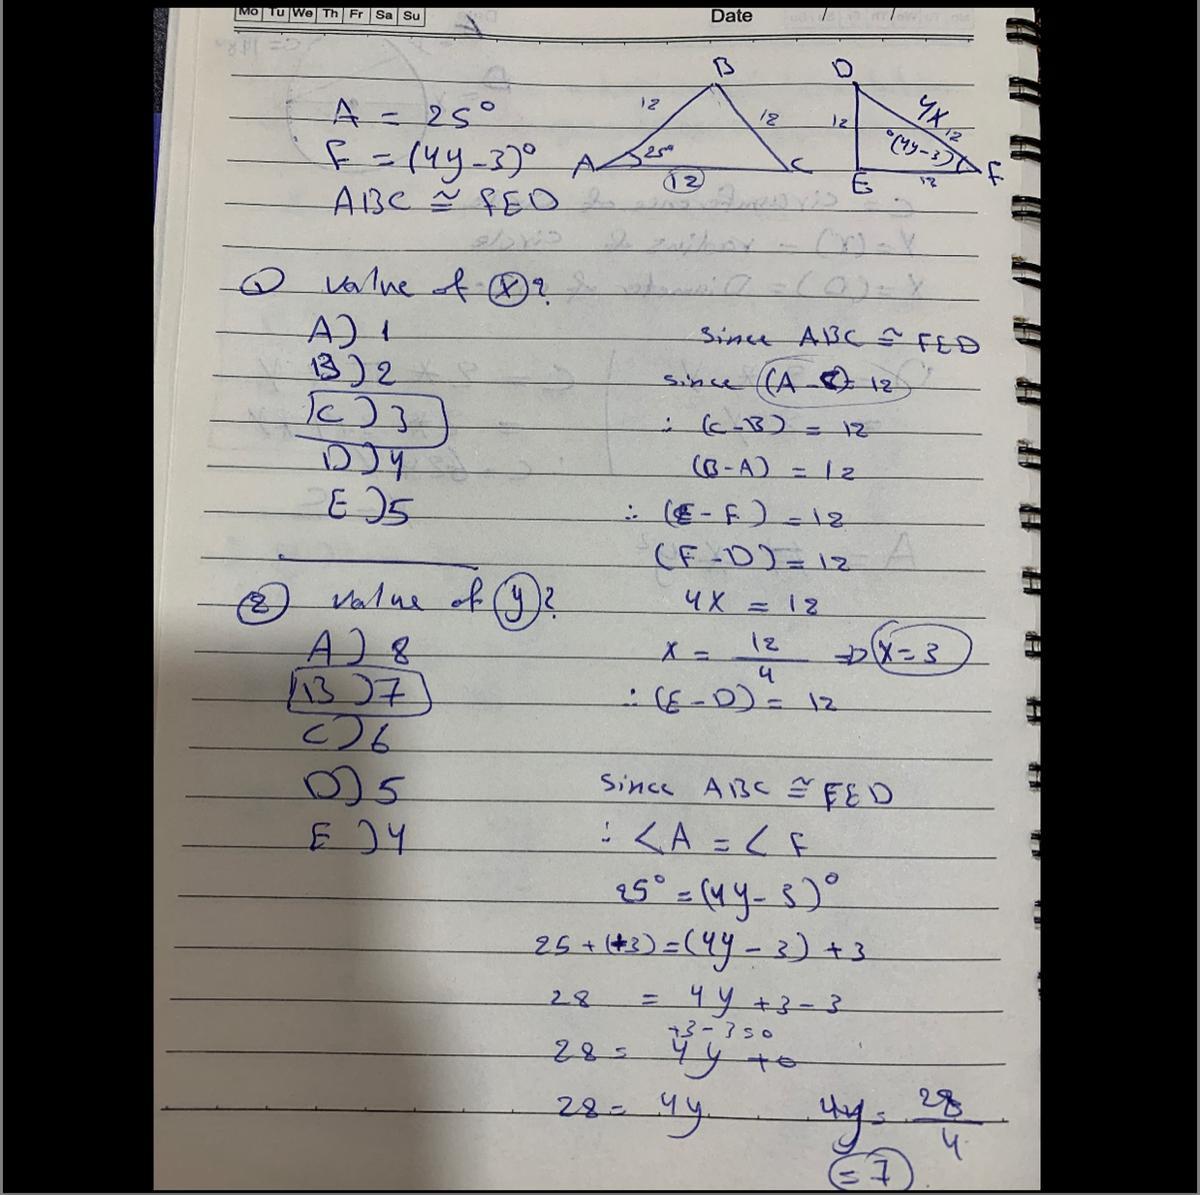 Mo Tu We Th Fr Sa Su
Date / /
A = 25°
F = (4y-3)°
ABC ≅ FED
B
12
12
A
25°
12
C
D
4x
12
12
(4y-3)°
E
12
F
① value of x?
A) 1
B) 2
C) 3
D) 4
E) 5
Since ABC ≅ FED
since (A-C) = 12
∴ (C-B) = 12
(B-A) = 12
∴ (E-F) = 12
(F-D) = 12
4x = 12
x = 12/4 ⇒ x=3
∴ (E-D) = 12
② value of y?
A) 8
B) 7
C) 6
D) 5
E) 4
Since ABC ≅ FED
∴ <A = <F
25° = (4y-3)°
25 + (+3) = (4y-3) + 3
28 = 4y +3-3
+3-3=0
28 = 4y +0
28 = 4y
4y = 28/4
= 7